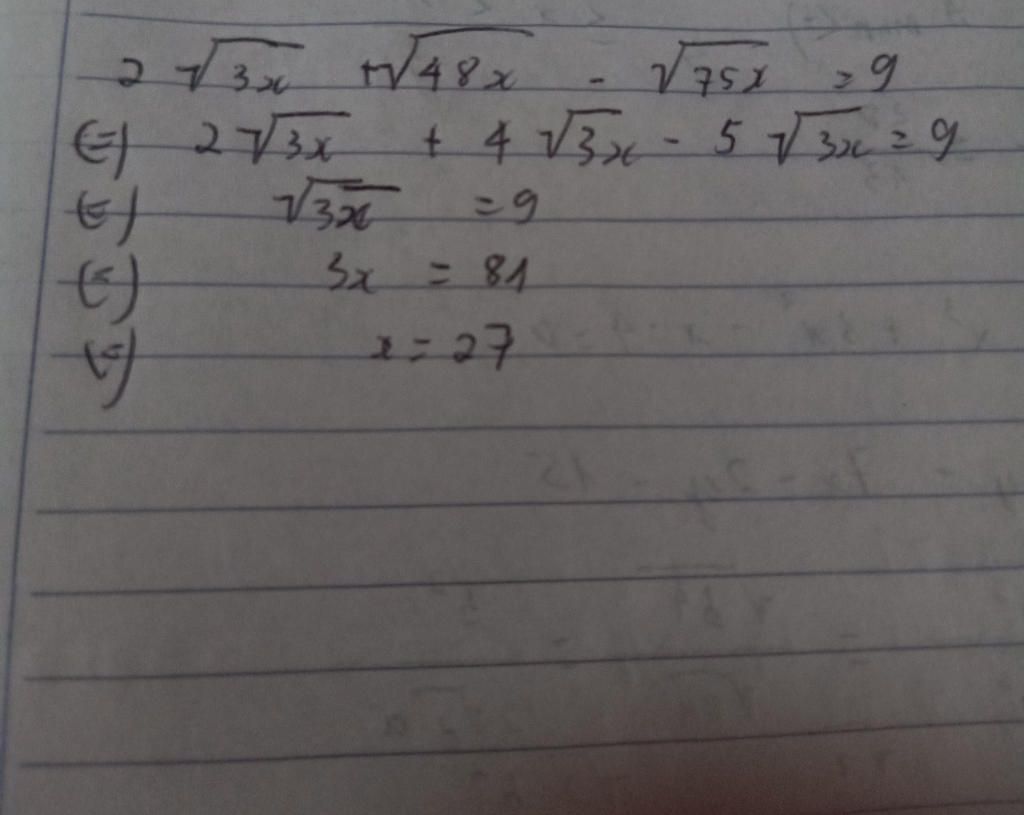 2 √3x + √48x - √75x = 9
(=) 2 √3x + 4 √3x - 5 √3x = 9
(=) √3x = 9
(=) 3x = 81
(=) x = 27